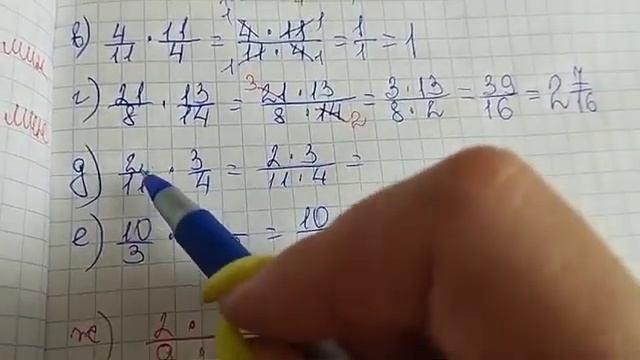 мин
мин
в) 4/11 · 11/4 = 4 · 11/11 · 4 = 1/1 = 1
г) 21/8 · 13/14 = 21 · 13/8 · 14 = 3 · 13/8 · 2 = 39/16 = 2 7/16
д) 2/11 · 3/4 = 2 · 3/11 · 4 =
е) 10/3 · = 10
ж) 2 ·